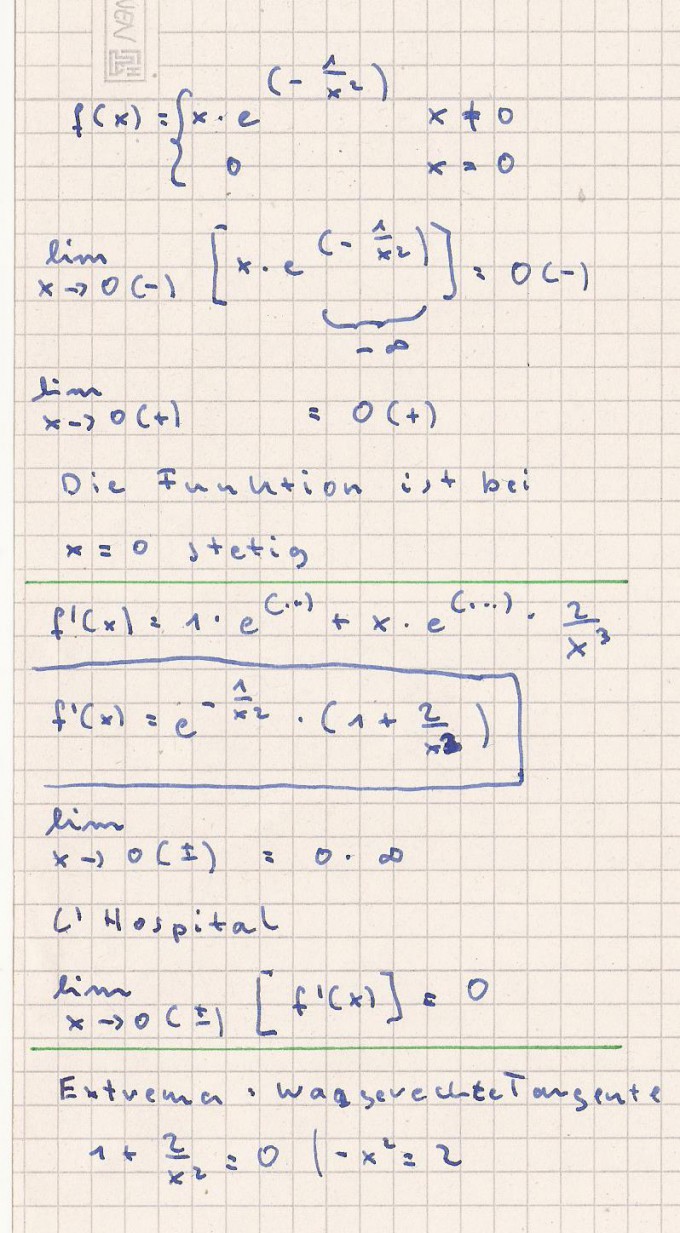 VEN
f(x) = { x · e^(- 1/x²) x ≠ 0
0 x = 0
lim x→0(-) [x · e^(- 1/x²)] = 0(-)
- ∞
lim x→0(+) = 0(+)
Die Funktion ist bei
x = 0 stetig
f'(x) = 1 · e^(...) + x · e^(...) · 2/x³
f'(x) = e^(- 1/x²) · (1 + 2/x²)
lim x→0(±) = 0 · ∞
L'Hospital
lim x→0(±) [f'(x)] = 0
Extrema · waagerechte Tangente
1 + 2/x² = 0 | -x² = 2